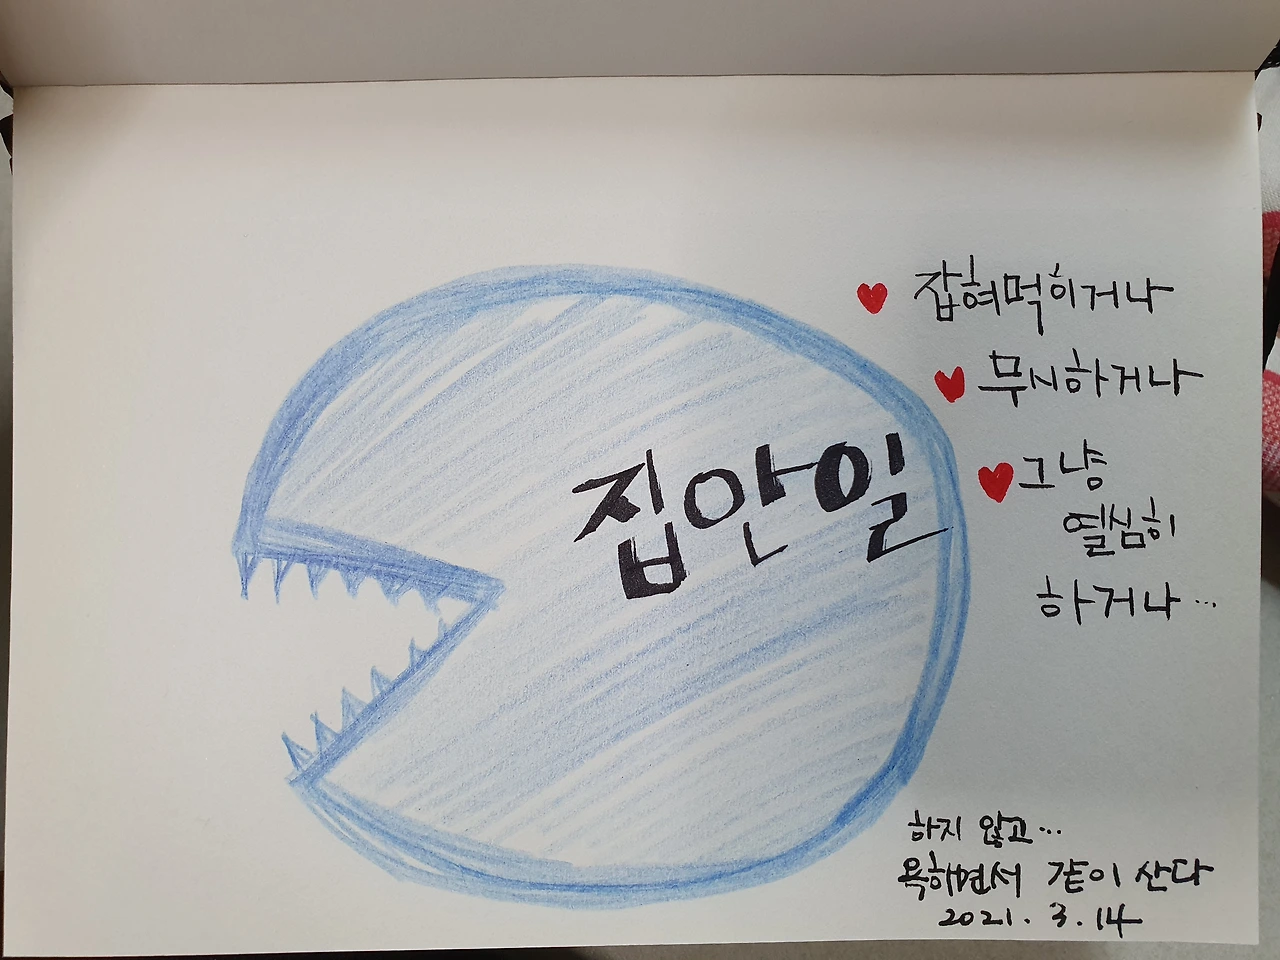 집안일
잡혀먹히거나
무시하거나
그냥
열심히
하거나...
하지 않고...
욕하면서 같이 산다
2021. 3. 14